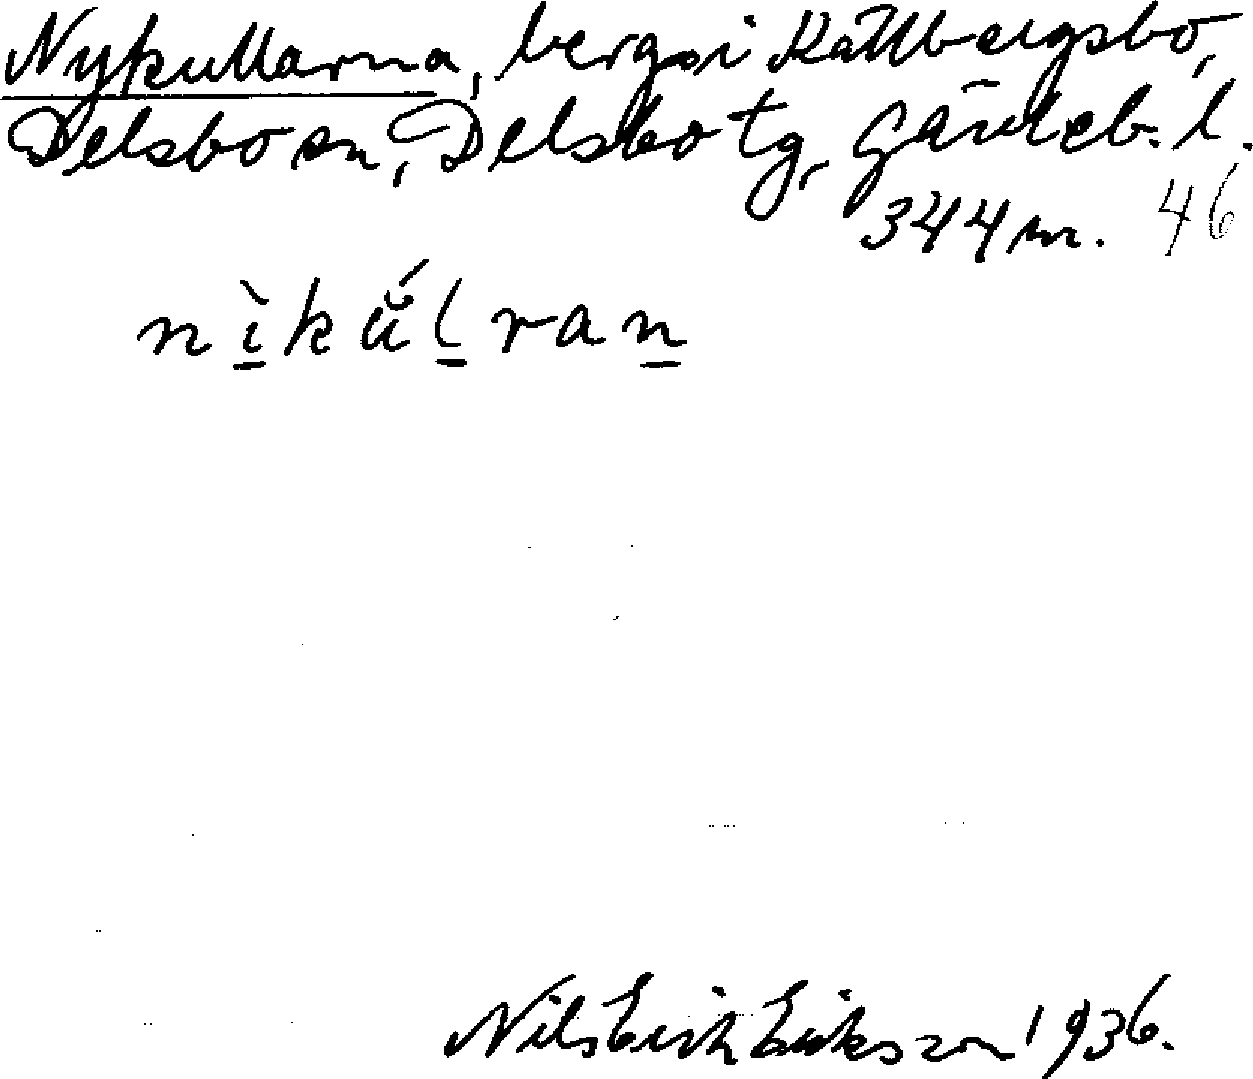 Nykullarna, berg i Källbergsbo,
Delsbo sn, Delsbo tg, Gävleb. l.
344 m. 46
nìkŭ́lran
Nils Erik Eriksson 1936.